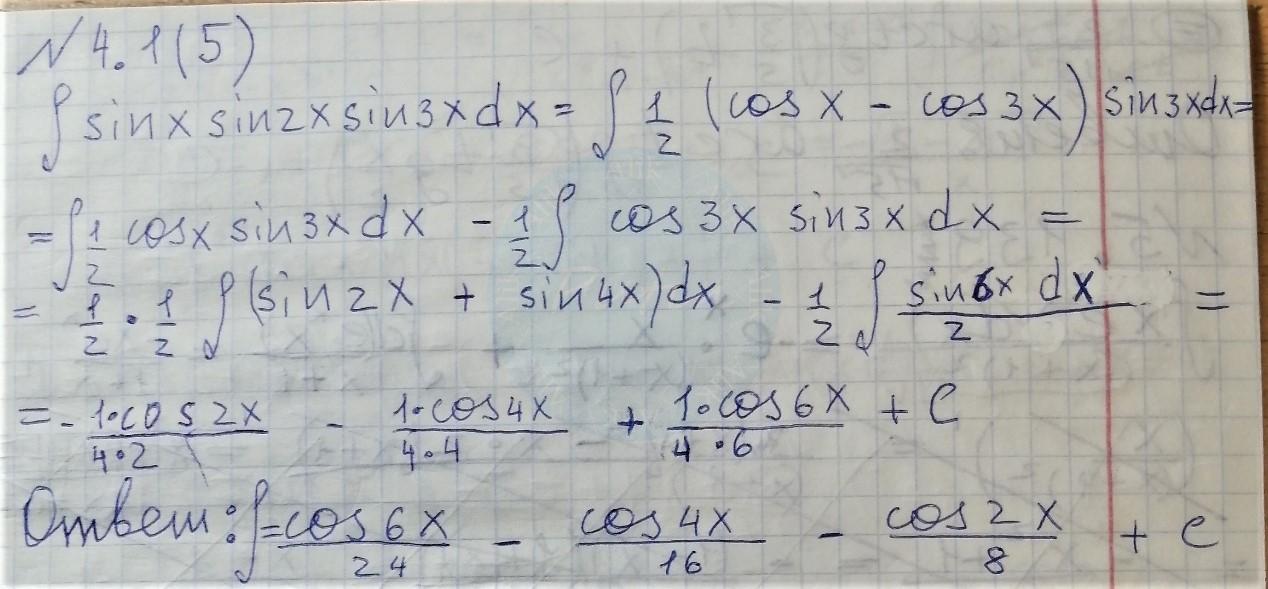 N 4.1(5)
∫ sinx sin2x sin3x dx = ∫ 1/2 (cos x - cos 3x) sin3xdx=
= ∫ 1/2 cosx sin3x dx - 1/2 ∫ cos3x sin3x dx =
= 1/2 · 1/2 ∫ (sin2x + sin4x)dx - 1/2 ∫ sin6x dx / 2 =
= - 1·cos2x / 4·2 - 1·cos4x / 4·4 + 1·cos6x / 4·6 + C
Ответ: ∫ = cos6x / 24 - cos4x / 16 - cos2x / 8 + C